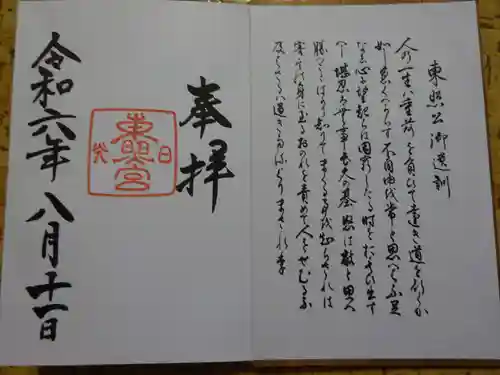 東照公御遺訓
人の一生は重荷を負いて遠き道を行くか
如し急くへからす不自由を常と思へは不足
なし心に望起らは困窮したる時を思ひ出す
へし堪忍は無事長久の基怒は敵と思へ
勝つことはかり知りてまくる事を知らされは
害其身に至るおのれを責めて人をせむるな
及はさるは過きたるよりまされり
奉拝
日
東照宮
光
令和六年八月十一日